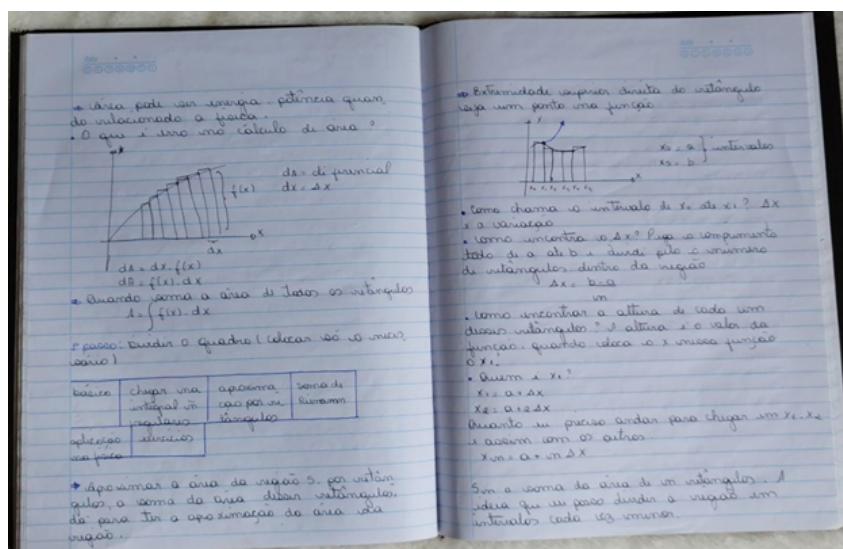 → área pode ser energia. potência quan
do relacionado a física.
• O que é isso no cálculo de área?
dA = diferencial
dx = Δx
f(x)
x
dx
dA = dx. f(x)
dA = f(x). dx
→ Quando soma a área de todos os retângulos
A = ∫ f(x). dx
passo: Dividir o quadro (colocar só o neces
sário)
básico
chegar na
integral
aproxima
ção por re
tângulos
soma de
Riemann
aplicação
na física
exercícios
→ Aproximar a área da região S. por retân
gulos, a soma da área desses retângulos,
dá para ter a aproximação da área da
região.
→ Extremidade superior direita do retângulo
seja um ponto na função
y
x
x0 = a
= b
intervalos
• Como chama o intervalo de x0 até x1? Δx
é a variação
• Como encontra o Δx? Pega o comprimento
todo de a até b e dividi pelo o número
de retângulos dentro da região
Δx = b-a
n
• Como encontrar a altura de cada um
desses retângulos? A altura é o valor da
função. quando coloca o x nessa função
o x1.
• Quem é x1?
x1 = a + Δx
x2 = a + 2Δx
Quanto eu preciso andar para chegar em x1, x2
e assim com os outros
xn = a + n Δx
Sn a soma da área de n retângulos. A
ideia que eu posso dividir a região em
intervalos cada vez menor.